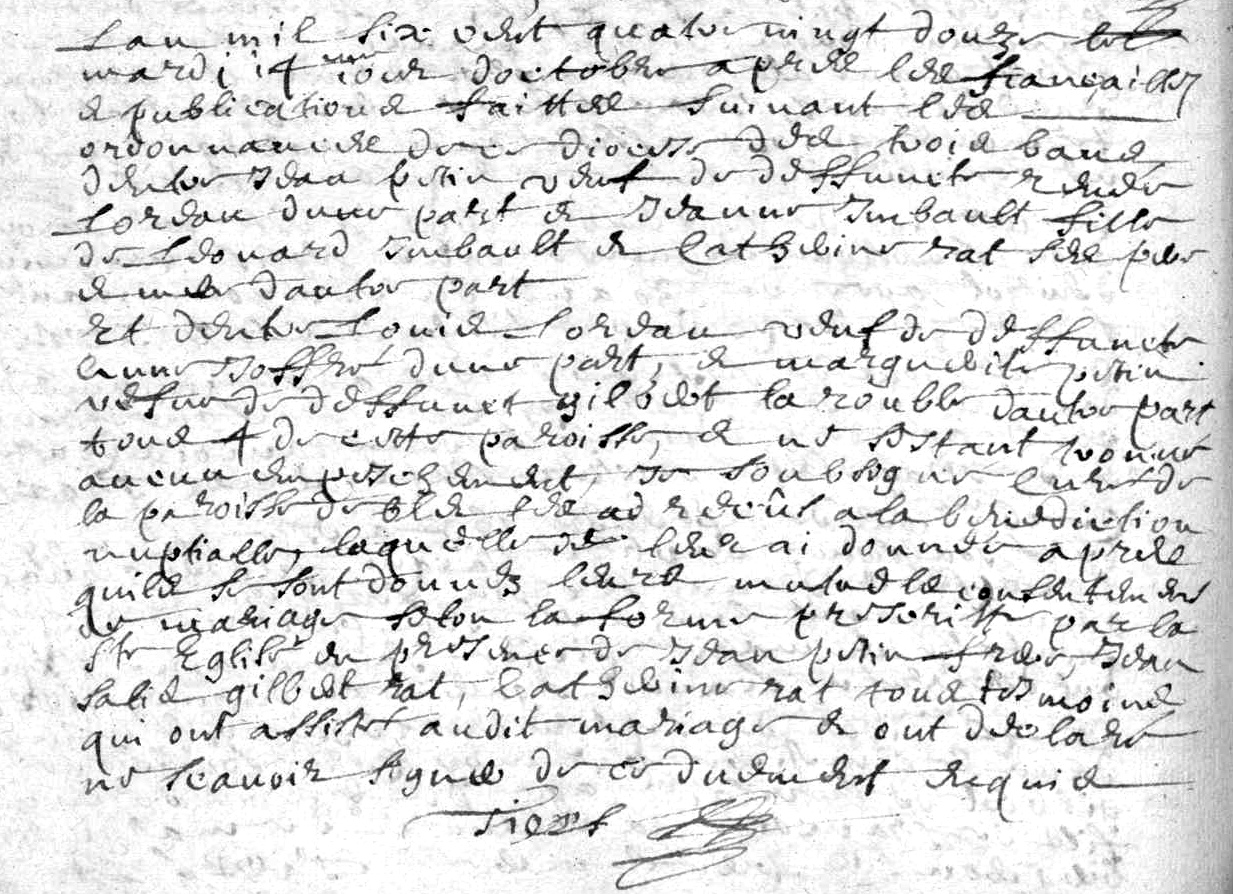 Lan mil six cent quatre vingt douze le
mardi 14me iour doctobre apres les fiançailles
& publications faittes suivant les
ordonnances de ce diocese des trois bans
dentre Jean petin veuf de deffuncte renée
Loreau dune part & Jeanne Imbault fille
de Edouard Imbault & Catherine rat ses pere
& mere dautre part
Et dentre Louis Loreau veuf de deffuncte
Anne dune part, & marguerite petin
vefue de deffunct gilbert larouble dautre part
tous 4 de cette paroisse, & ne sestant trouué
aucun empeschement, Je soubsigné Curé de
la paroisse de les ad receus a la benediction
nuptialle, laquelle ie leur ai donnée apres
quils se sont donnez leurs mutuels consentemens
de mariage selon la forme prescritte par la
Ste Eglise en presence de Jean petin frere, Jean
gilbert rat, Catherine rat tous tesmoins
qui ont assisté audit mariage & ont declaré
ne scauoir signer de ce duement enquis